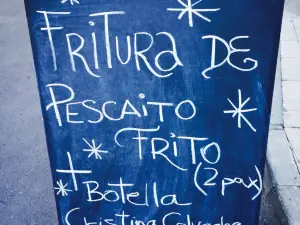 FRITURA DE
PESCAITO
FRITO
+ (2 pax)
Botella
Cristina